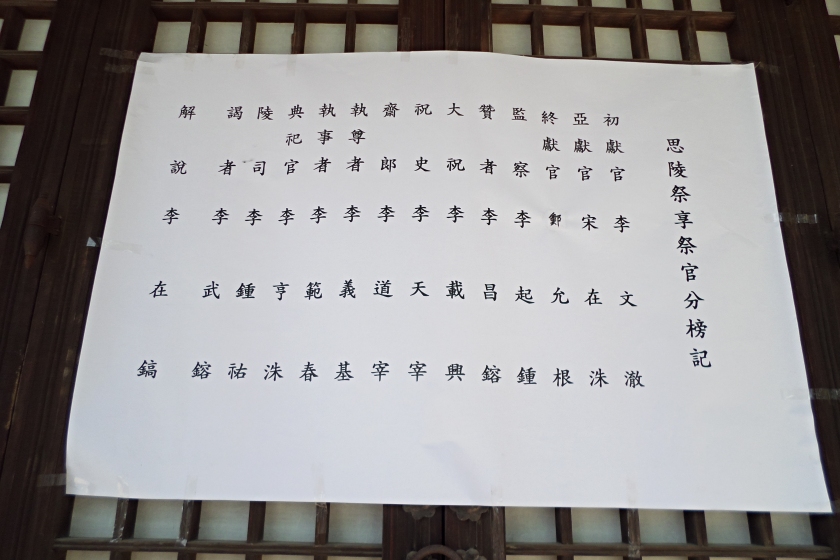 思陵祭享祭官分榜記
初獻官 李文澈
亞獻官 宋在洙
終獻官 鄭允根
監察 李起鍾
贊者 李昌鎔
大祝 李載興
祝史 李天宰
齋郞 李道宰
執尊者 李義基
執事者 李範春
典祀官 李亨洙
陵司 李鍾祐
謁者 李武鎔
解說 李在鎬